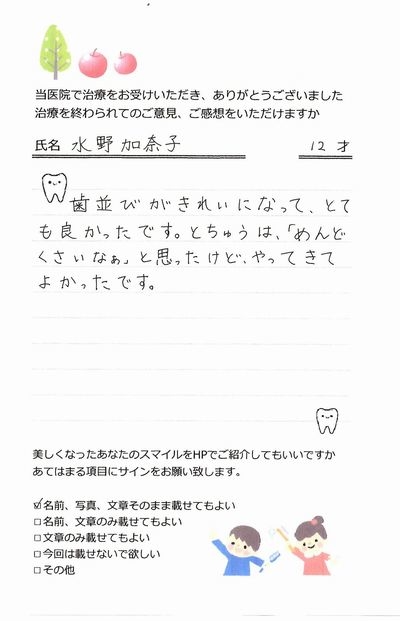 当医院で治療をお受けいただき、ありがとうございました
治療を終わられてのご意見、ご感想をいただけますか
氏名 水野 加奈子 12 才
歯並びがきれいになって、とて
も良かったです。とちゅうは、「めんど
くさいなぁ」と思ったけど、やってきて
よかったです。
美しくなったあなたのスマイルをHPでご紹介してもいいですか
あてはまる項目にサインをお願い致します。
☑名前、写真、文章そのまま載せてもよい
□名前、文章のみ載せてもよい
□文章のみ載せてもよい
□今回は載せないで欲しい
□その他